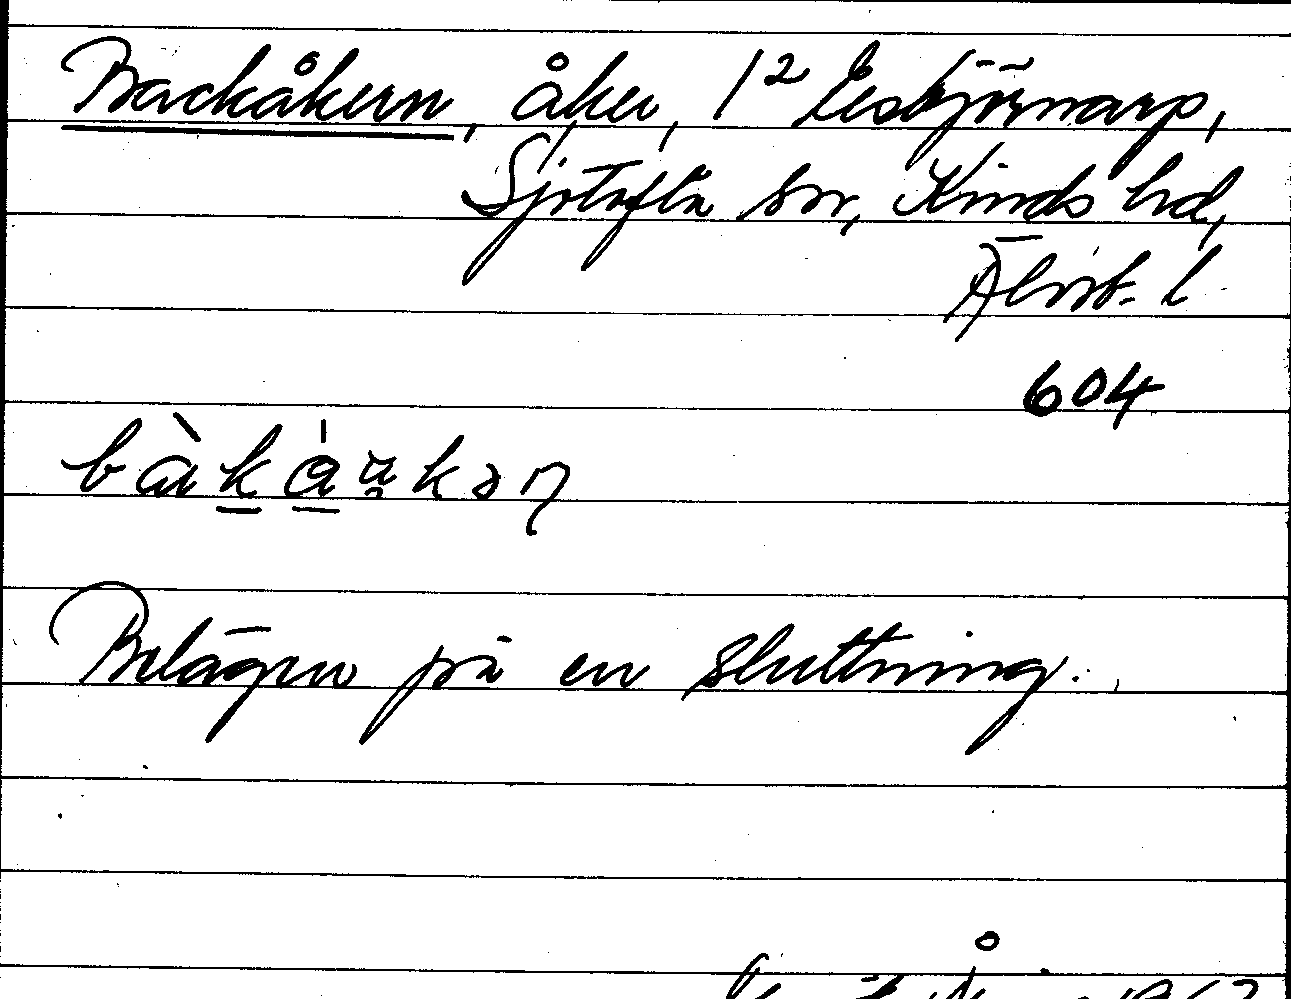 Backåkern, åker, 1² Esbjörnarp,
Sjötofta sn, Kinds hd,
Älvsb. l
604
bàkåu̥kən
Belägen på en sluttning.